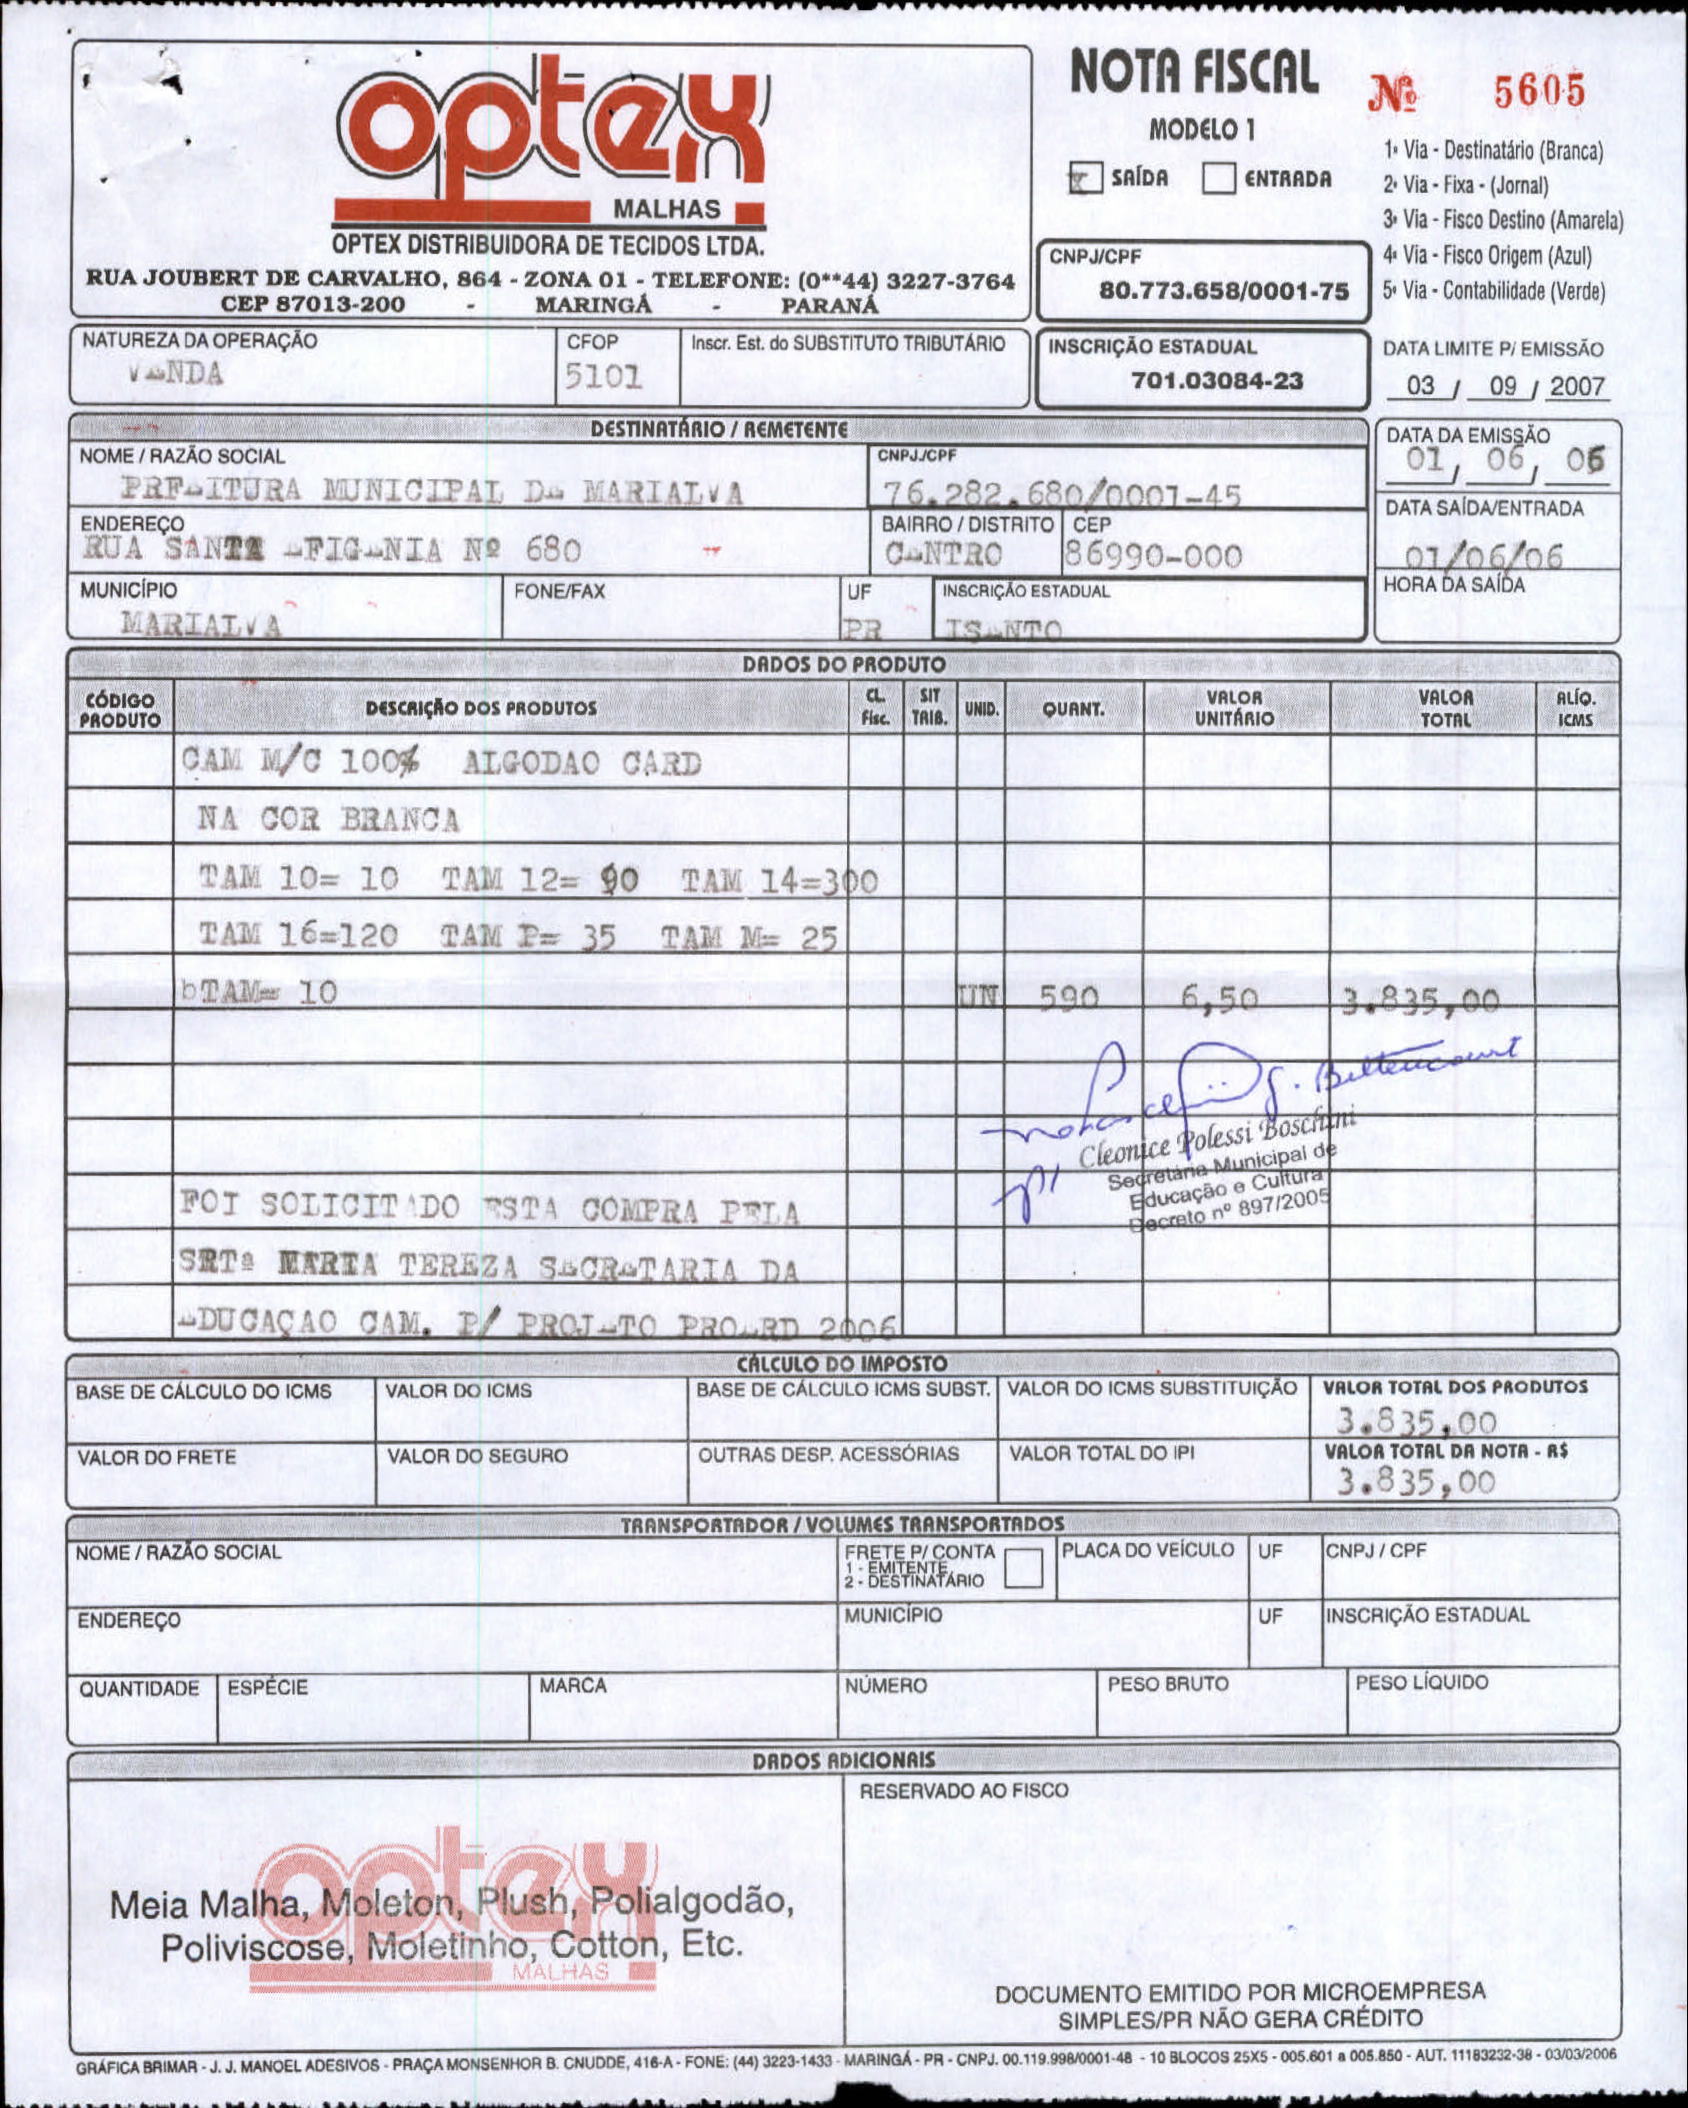 optex
MALHAS
OPTEX DISTRIBUIDORA DE TECIDOS LTDA.
RUA JOUBERT DE CARVALHO, 864 - ZONA 01 - TELEFONE: (0**44) 3227-3764
CEP 87013-200 - MARINGÁ - PARANÁ
NOTA FISCAL
Nº 5605
MODELO 1
X SAÍDA ENTRADA
1ª Via - Destinatário (Branca)
2ª Via - Fixa - (Jornal)
3ª Via - Fisco Destino (Amarela)
4ª Via - Fisco Origem (Azul)
5ª Via - Contabilidade (Verde)
CNPJ/CPF
80.773.658/0001-75
NATUREZA DA OPERAÇÃO
VENDA
CFOP
5101
Inscr. Est. do SUBSTITUTO TRIBUTÁRIO
INSCRIÇÃO ESTADUAL
701.03084-23
DATA LIMITE P/ EMISSÃO
03 / 09 / 2007
DESTINATÁRIO / REMETENTE
NOME / RAZÃO SOCIAL
PREFEITURA MUNICIPAL DE MARIALVA
CNPJ/CPF
76.282.680/0001-45
DATA DA EMISSÃO
01, 06, 06
ENDEREÇO
RUA SANTA EFIGENIA Nº 680
BAIRRO / DISTRITO
CENTRO
CEP
86990-000
DATA SAÍDA/ENTRADA
01/06/06
MUNICÍPIO
MARIALVA
FONE/FAX
UF
PR
INSCRIÇÃO ESTADUAL
ISENTO
HORA DA SAÍDA
DADOS DO PRODUTO
CÓDIGO PRODUTO DESCRIÇÃO DOS PRODUTOS CL. Fisc. SIT TRIB. UNID. QUANT. VALOR UNITÁRIO VALOR TOTAL ALÍQ. ICMS
CAM M/C 100% ALGODAO CARD
NA COR BRANCA
TAM 10= 10 TAM 12= 90 TAM 14=300
TAM 16=120 TAM P= 35 TAM M= 25
bTAM= 10 UN 590 6,50 3.835,00
J. Bittencourt
p/
Cleonice Polessi Boschini
Secretária Municipal de
Educação e Cultura
Decreto nº 897/2005
FOI SOLICITADO ESTA COMPRA PELA
SRTª MARIA TEREZA SECRETARIA DA
EDUCAÇAO CAM. P/ PROJETO PROERD 2006
CÁLCULO DO IMPOSTO
BASE DE CÁLCULO DO ICMS
VALOR DO ICMS
BASE DE CÁLCULO ICMS SUBST.
VALOR DO ICMS SUBSTITUIÇÃO
VALOR TOTAL DOS PRODUTOS
3.835,00
VALOR DO FRETE
VALOR DO SEGURO
OUTRAS DESP. ACESSÓRIAS
VALOR TOTAL DO IPI
VALOR TOTAL DA NOTA - R$
3.835,00
TRANSPORTADOR / VOLUMES TRANSPORTADOS
NOME / RAZÃO SOCIAL
FRETE P/ CONTA
1 - EMITENTE
2 - DESTINATÁRIO
PLACA DO VEÍCULO
UF
CNPJ / CPF
ENDEREÇO
MUNICÍPIO
UF
INSCRIÇÃO ESTADUAL
QUANTIDADE
ESPÉCIE
MARCA
NÚMERO
PESO BRUTO
PESO LÍQUIDO
DADOS ADICIONAIS
RESERVADO AO FISCO
optex
Meia Malha, Moleton, Plush, Polialgodão,
Poliviscose, Moletinho, Cotton, Etc.
MALHAS
DOCUMENTO EMITIDO POR MICROEMPRESA
SIMPLES/PR NÃO GERA CRÉDITO
GRÁFICA BRIMAR - J. J. MANOEL ADESIVOS - PRAÇA MONSENHOR B. CNUDDE, 416-A - FONE: (44) 3223-1433 - MARINGÁ - PR - CNPJ. 00.119.998/0001-48 - 10 BLOCOS 25X5 - 005.601 a 005.850 - AUT. 11183232-38 - 03/03/2006